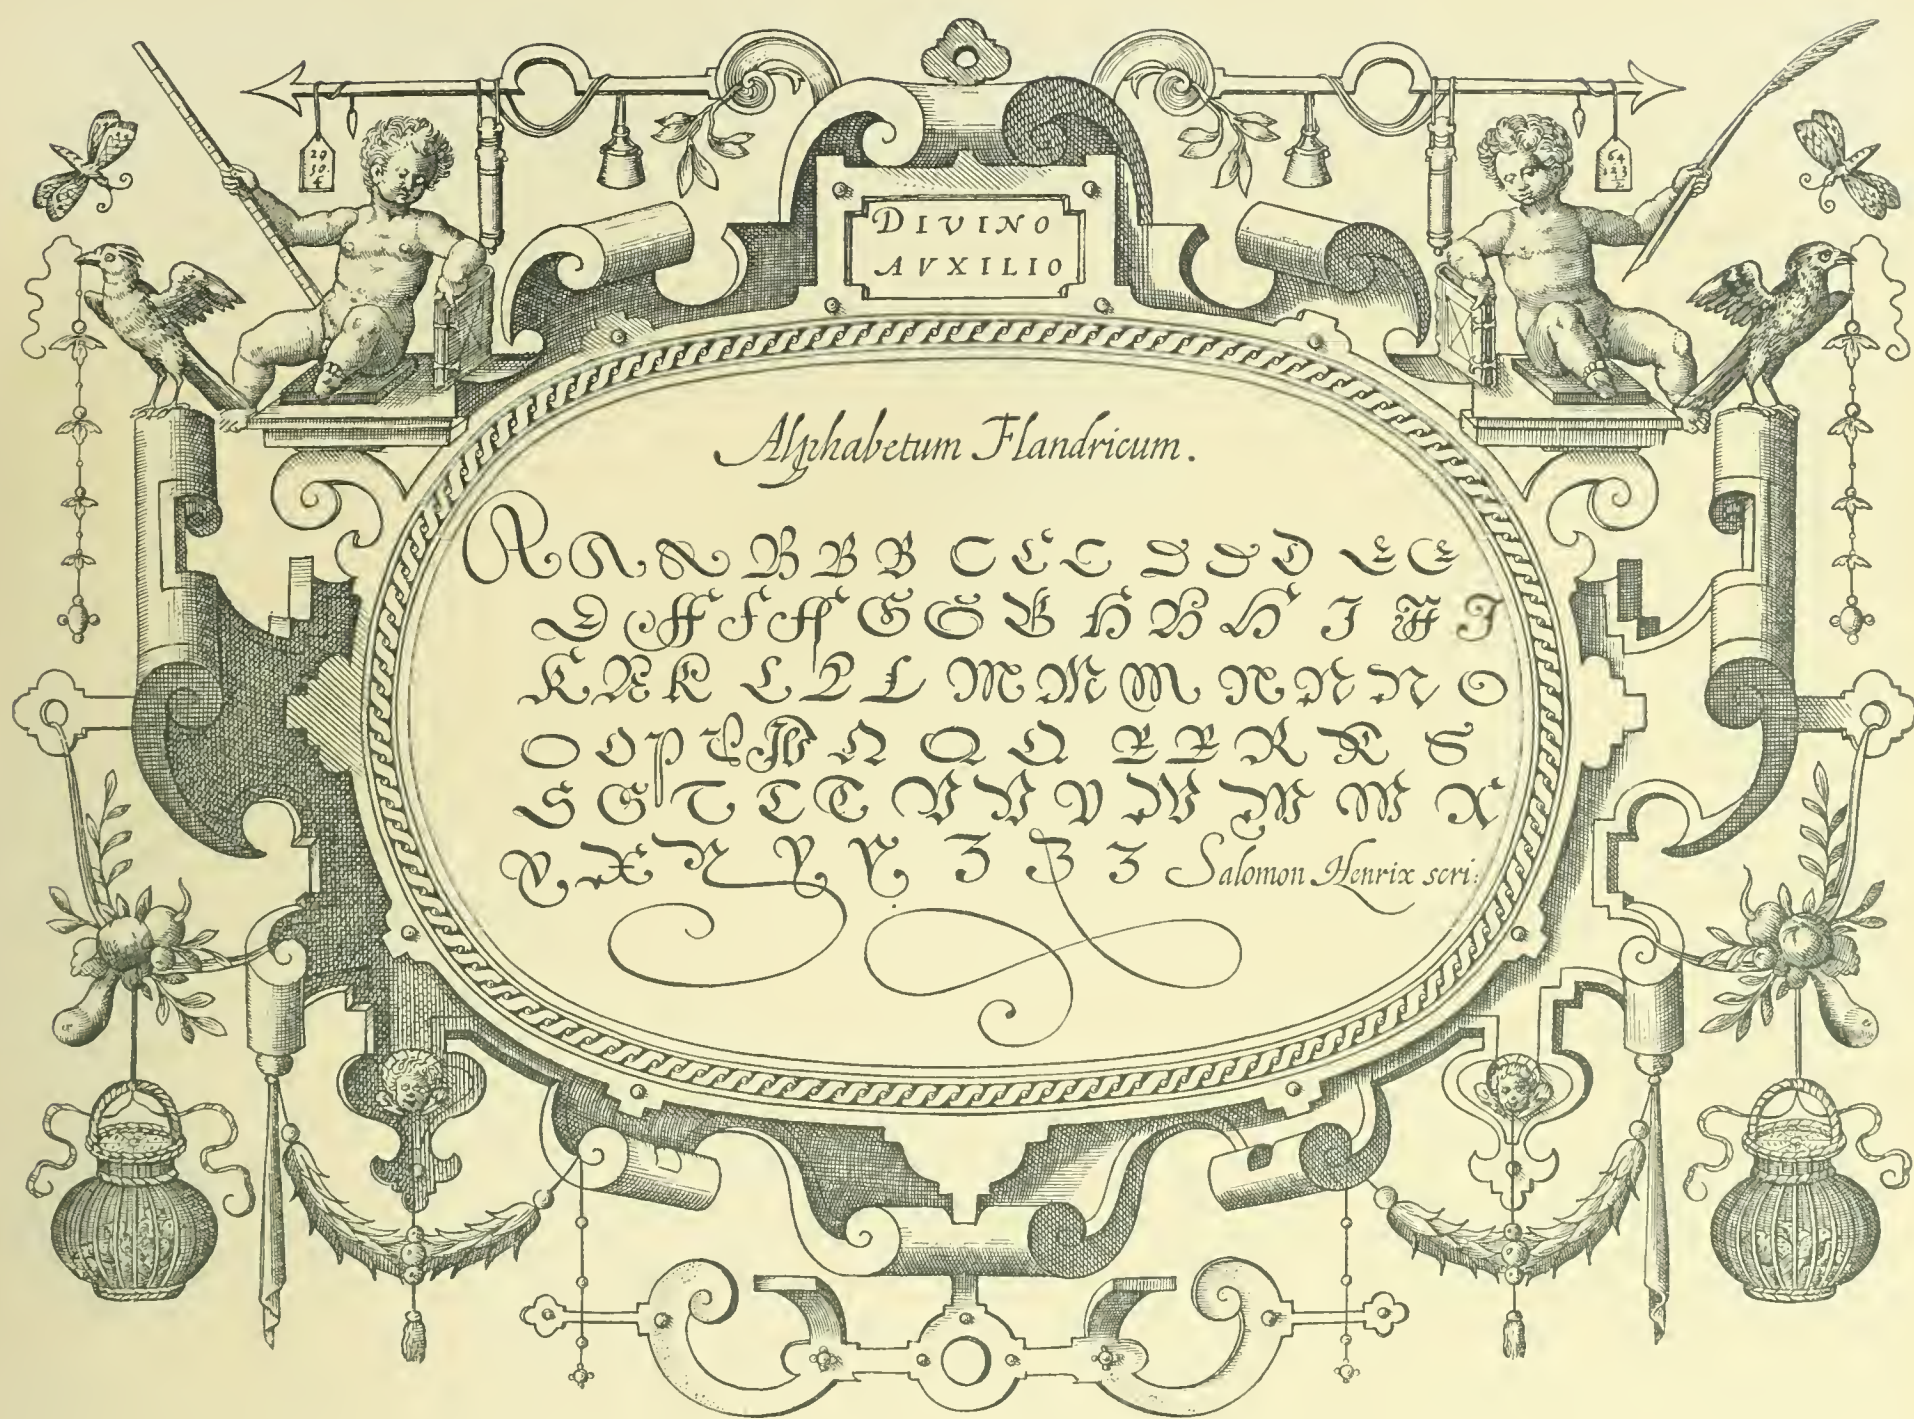 29
30.
4
64
323
2
DIVINO
AVXILIO
Alphabetum Flandricum.
A A A B B B C C C D D D E E
E F F F G G G H H H I I I
K K K L L L M M M N N N O
O O P P P Q Q Q R R R R S
S S T T T V V V W W W X
X X Y Y Y Z Z Z Salomon Henrix scri: